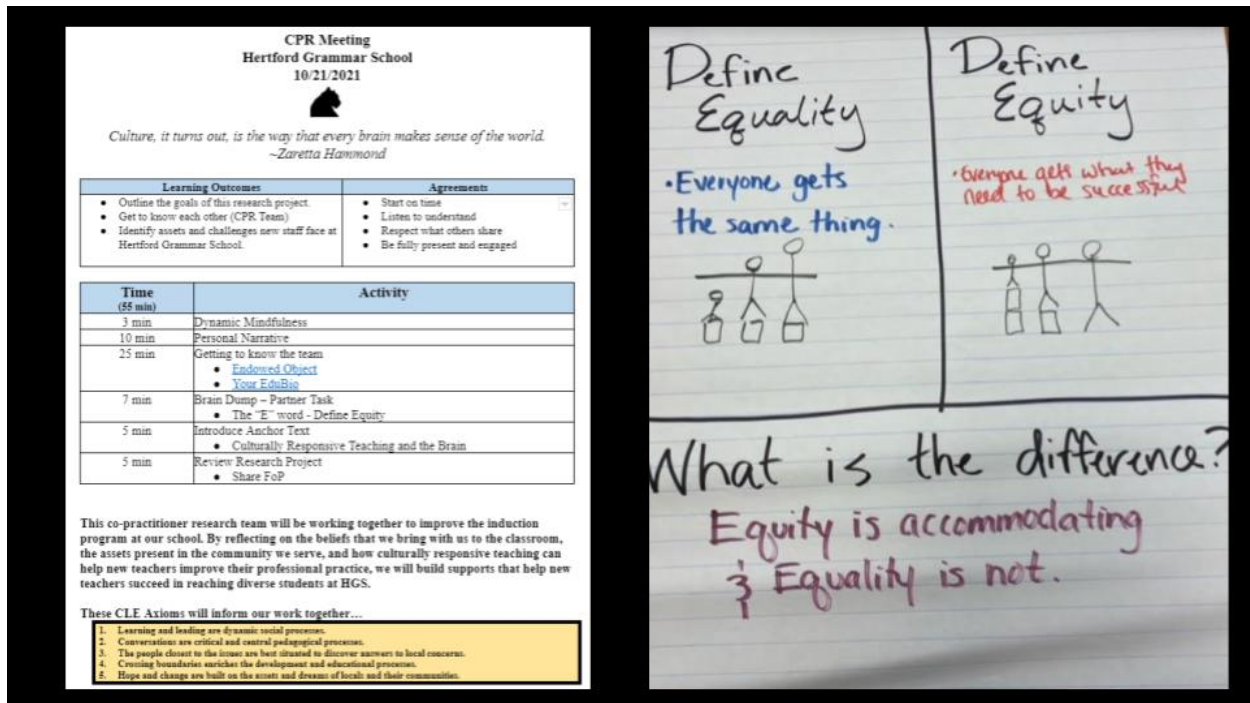 CPR Meeting
Hertford Grammar School
10/21/2021
Culture, it turns out, is the way that every brain makes sense of the world.
~Zaretta Hammond
Learning Outcomes
• Outline the goals of this research project.
• Get to know each other (CPR Team)
• Identify assets and challenges new staff face at
Hertford Grammar School.
Agreements
• Start on time
• Listen to understand
• Respect what others share
• Be fully present and engaged
Time Activity
(55 min)
3 min Dynamic Mindfulness
10 min Personal Narrative
25 min Getting to know the team
• Endowed Object
• Your EduBio
7 min Brain Dump – Partner Task
• The "E" word - Define Equity
5 min Introduce Anchor Text
• Culturally Responsive Teaching and the Brain
5 min Review Research Project
• Share FoP
This co-practitioner research team will be working together to improve the induction
program at our school. By reflecting on the beliefs that we bring with us to the classroom,
the assets present in the community we serve, and how culturally responsive teaching can
help new teachers improve their professional practice, we will build supports that help new
teachers succeed in reaching diverse students at HGS.
These CLE Axioms will inform our work together…
1. Learning and leading are dynamic social processes.
2. Conversations are critical and central pedagogical processes.
3. The people closest to the issues are best situated to discover answers to local concerns.
4. Crossing boundaries enriches the development and educational processes.
5. Hope and change are built on the assets and dreams of locals and their communities.
Define
Equality
• Everyone gets
the same thing.
Define
Equity
• Everyone gets what they
need to be successful
What is the difference?
Equity is accommodating
& Equality is not.